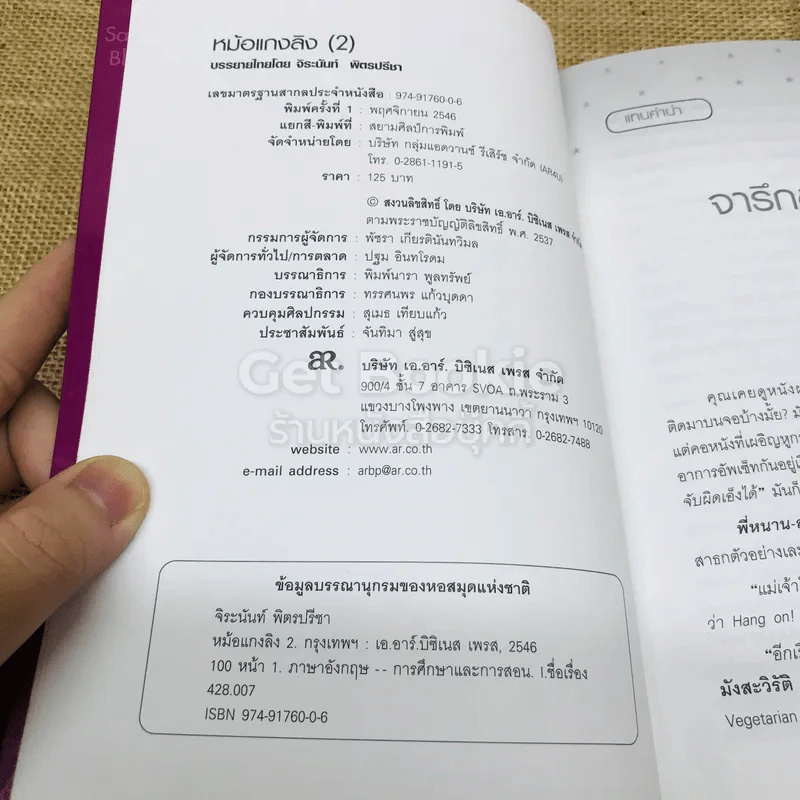 หม้อแกงลิง (2)
บรรยายไทยโดย จิระนันท์ พิตรปรีชา
เลขมาตรฐานสากลประจำหนังสือ : 974-91760-0-6
พิมพ์ครั้งที่ 1 : พฤศจิกายน 2546
แยกสี-พิมพ์ที่ : สยามศิลป์การพิมพ์
จัดจำหน่ายโดย : บริษัท กลุ่มแอดวานซ์ รีเสิร์ช จำกัด (AR4U)
โทร. 0-2861-1191-5
ราคา : 125 บาท
© สงวนลิขสิทธิ์ โดย บริษัท เอ.อาร์. บิซิเนส เพรส จำกัด
ตามพระราชบัญญัติลิขสิทธิ์ พ.ศ. 2537
กรรมการผู้จัดการ : พัชรา เกียรตินันทวิมล
ผู้จัดการทั่วไป/การตลาด : ปฐม อินทโรดม
บรรณาธิการ : พิมพ์นารา พูลทรัพย์
กองบรรณาธิการ : ทรรศนพร แก้วบุดดา
ควบคุมศิลปกรรม : สุเมธ เทียบแก้ว
ประชาสัมพันธ์ : จันทิมา สู่สุข
aR® บริษัท เอ.อาร์. บิซิเนส เพรส จำกัด
900/4 ชั้น 7 อาคาร SVOA ถ.พระราม 3
แขวงบางโพงพาง เขตยานนาวา กรุงเทพฯ 10120
โทรศัพท์. 0-2682-7333 โทรสาร. 0-2682-7488
website : www.ar.co.th
e-mail address : arbp@ar.co.th
ข้อมูลบรรณานุกรมของหอสมุดแห่งชาติ
จิระนันท์ พิตรปรีชา
หม้อแกงลิง 2. กรุงเทพฯ : เอ.อาร์.บิซิเนส เพรส, 2546
100 หน้า 1. ภาษาอังกฤษ -- การศึกษาและการสอน. I.ชื่อเรื่อง
428.007
ISBN 974-91760-0-6
Get Bookie
ร้านหนังสือบุ๊คกี้
แทนคำนำ
จารึก
คุณเคยดูหนัง
ติดมาบนจอบ้างมั้ย?
แต่คอหนังที่เผอิญหูกา
อาการอัพเซ็ทกันอยู่เ
จับผิดเอ็งได้" มันก็
พี่หนาน-อ
สาธกตัวอย่างและ
"แม่เจ้า
ว่า Hang on!
"อีกเ
มังสะวิรัติ
Vegetarian